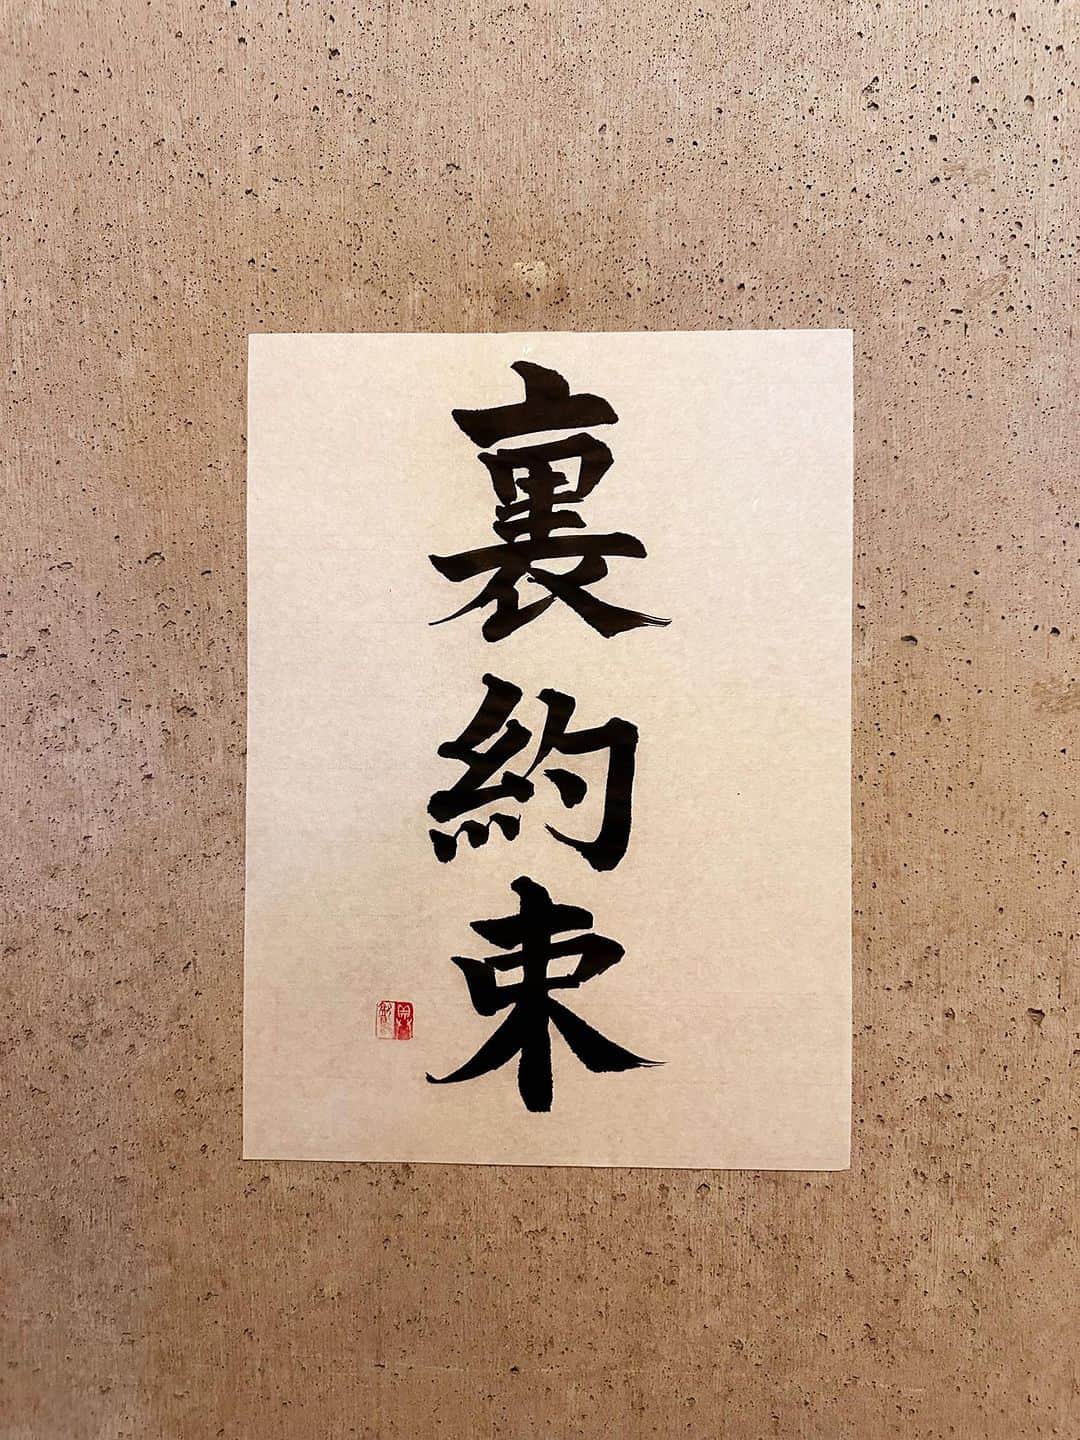 裏約束